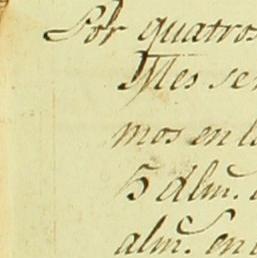 Por quatros
Mes se
mos en l
5 alm.
alm. en